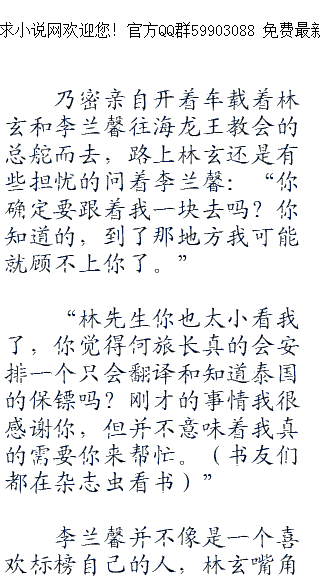 求小说网欢迎您! 官方QQ群59903088 免费最新
乃密亲自开着车载着林
玄和李兰馨往海龙王教会的
总舵而去，路上林玄还是有
些担忧的问着李兰馨：“你
确定要跟着我一块去吗？你
知道的，到了那地方我可能
就顾不上你了。”
“林先生你也太小看我
了，你觉得何旅长真的会安
排一个只会翻译和知道泰国
的保镖吗？刚才的事情我很
感谢你，但并不意味着我真
的需要你来帮忙。（书友们
都在杂志虫看书）”
李兰馨并不像是一个喜
欢标榜自己的人，林玄嘴角